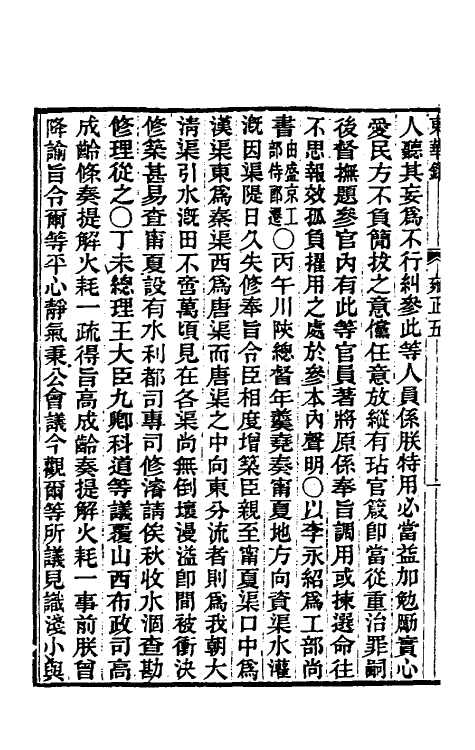 東華錄 雍正五
人聽其妄爲不行糾參此等人員係朕特用必當益加勉勵實心
愛民方不負簡拔之意儻任意放縱有玷官箴卽當從重治罪嗣
後督撫題參官內有此等官員著將原係奉旨調用或揀選命往
不思報效孤負擢用之處於參本內聲明○以李永紹爲工部尚
書由盛京工部侍郎遷○丙午川陝總督年羹堯奏甯夏地方向資渠水灌
漑因渠隄日久失修奉旨令臣相度增築臣親至甯夏渠口中爲
漢渠東爲秦渠西爲唐渠而唐渠之中向東分流者則爲我朝大
淸渠引水漑田不啻萬頃見在各渠尚無倒壞漫溢卽間被衝決
修築甚易查甯夏設有水利都司專司修濬請俟秋收水涸查勘
修理從之○丁未總理王大臣九卿科道等議覆山西布政司高
成齡條奏提解火耗一疏得旨高成齡奏提解火耗一事前朕曾
降諭旨令爾等平心靜氣秉公會議今觀爾等所議見識淺小與